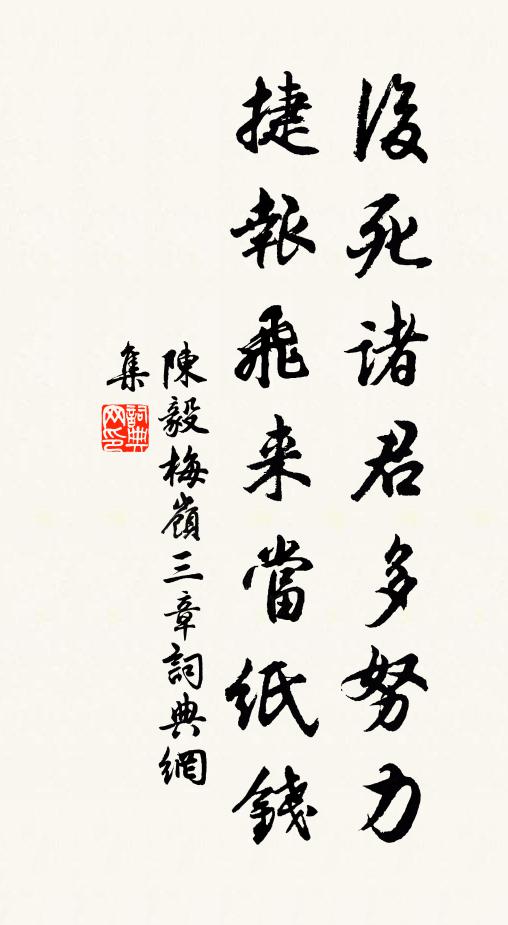 後死諸君多努力
捷報飛来當紙錢
陳毅梅嶺三章詞典網
集
詞典
网印